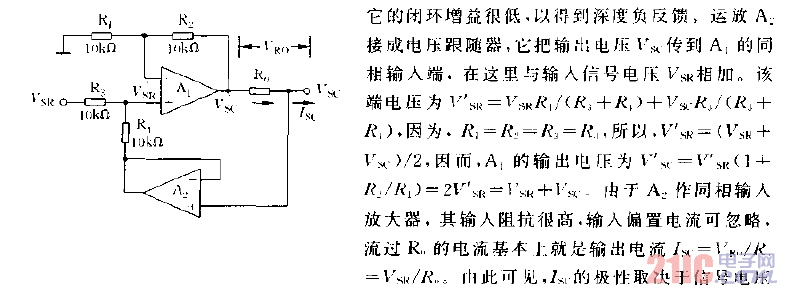 R₁
R₂
10kΩ
10kΩ
V_RO
R₃
V_SR
10kΩ
V'_SR
A₁
V'_SC
R₀
V_SC
I_SC
R₄
10kΩ
A₂
它的闭环增益很低,以得到深度负反馈,运放 A₂
接成电压跟随器,它把输出电压 V_SC传到 A₁ 的同
相输入端,在这里与输入信号电压 V_SR相加。该
端电压为 V'_SR=V_SRR₄/(R₃+R₄)+V_SCR₃/(R₃+
R₄),因为,R₁=R₂=R₃=R₄,所以,V'_SR=(V_SR+
V_SC)/2,因而,A₁ 的输出电压为 V'_SC=V'_SR(1+
R₂/R₁)=2V'_SR=V_SR+V_SC。由于 A₂ 作同相输入
放大器,其输入阻抗很高,输入偏置电流可忽略,
流过 R₀ 的电流基本上就是输出电流 I_SC=V_RO/R₀
=V_SR/R₀。由此可见,I_SC的极性取决于信号电压
21IC电子网